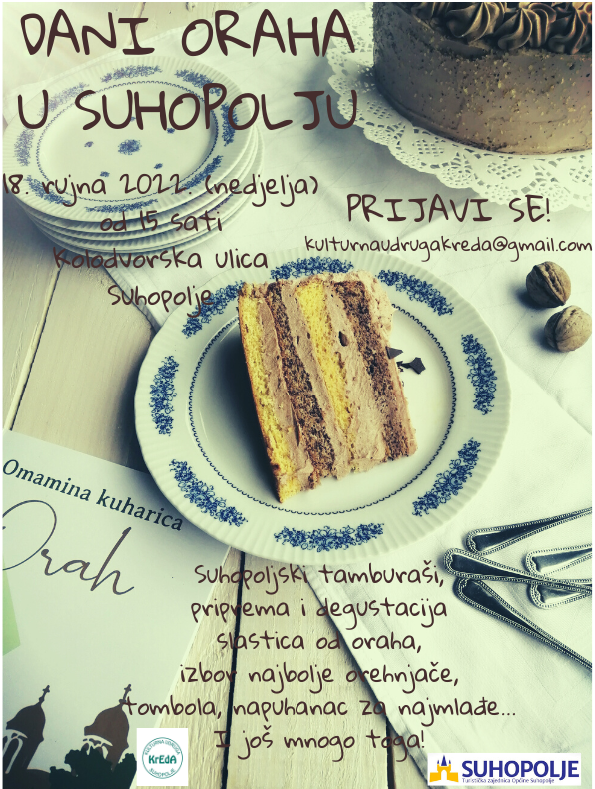 DANI ORAHA
U SUHOPOLJU
18. rujna 2022. (nedjelja)
od 15 sati
Kolodvorska ulica
Suhopolje
PRIJAVI SE!
kulturnaudrugakreda@gmail.com
Omamina kuharica
Orah
Suhopoljski tamburaši,
priprema i degustacija
slastica od oraha,
izbor najbolje orehnjače,
tombola, napuhanac za najmlađe...
I još mnogo toga!
KULTURNA UDRUGA
KrEdA
SUHOPOLJE
SUHOPOLJE
Turistička zajednica Općine Suhopolje